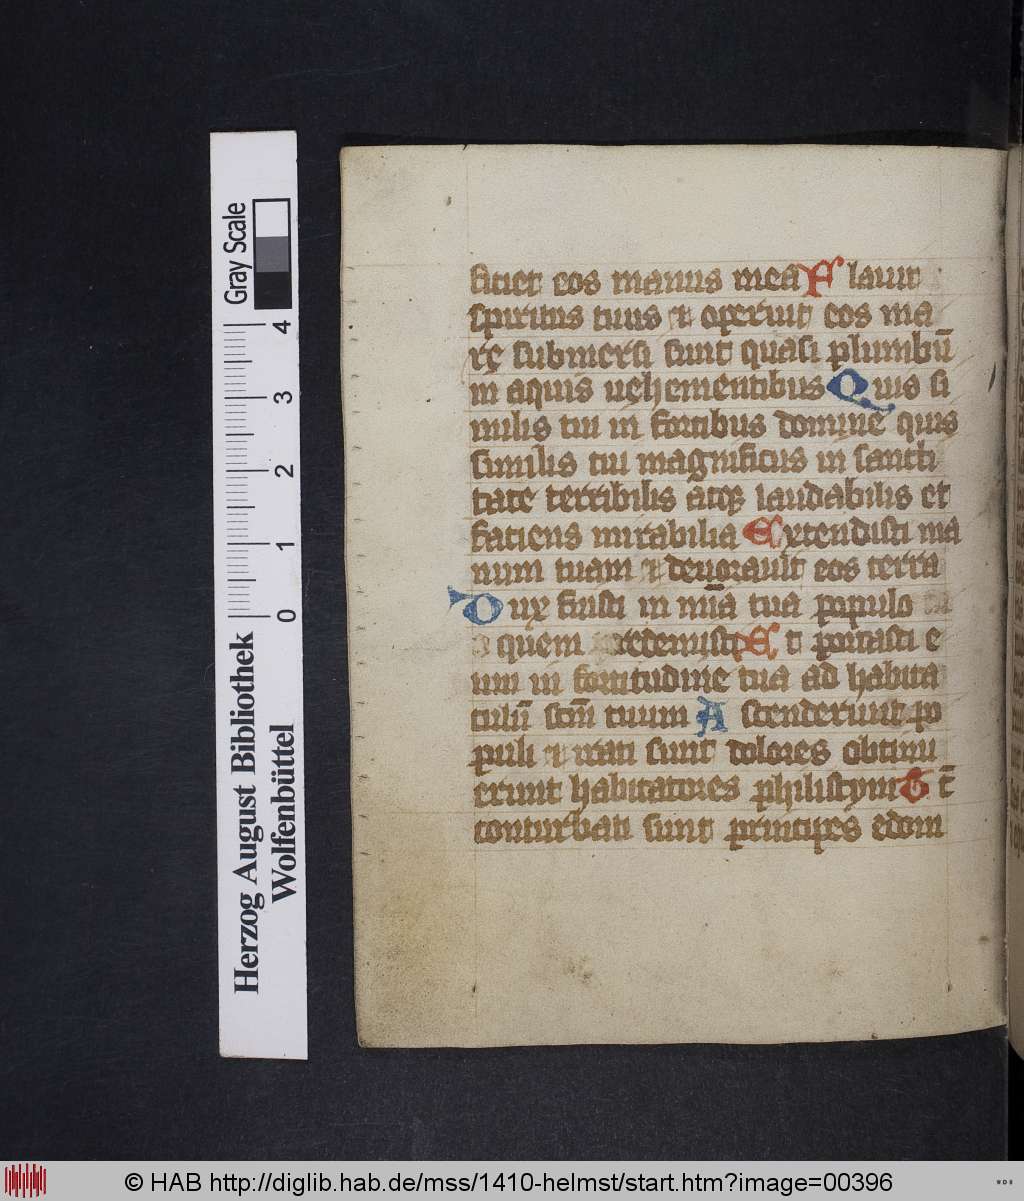 ficiet eos manus mea F lauit
spiritus tuus et operuit eos ma
re submersi sunt quasi plumbū
in aquis uehementibus Q uis si
milis tui in fortibus domine quis
similis tui magnificus in sancti
tate terribilis atqꝫ laudabilis et
faciens mirabilia E xtendisti ma
num tuam et deuorauit eos terra
D ux fuisti in mīa tua populo
quem redemisti E t portasti e
um in fortitudine tua ad habita
culū scm̄ tuum A scenderunt po
puli et irati sunt dolores obtinu
erunt habitatores philistym T c̄
conturbati sunt principes edom
Gray Scale
4
3
2
1
0
Herzog August Bibliothek
Wolfenbüttel
© HAB http://diglib.hab.de/mss/1410-helmst/start.htm?image=00396